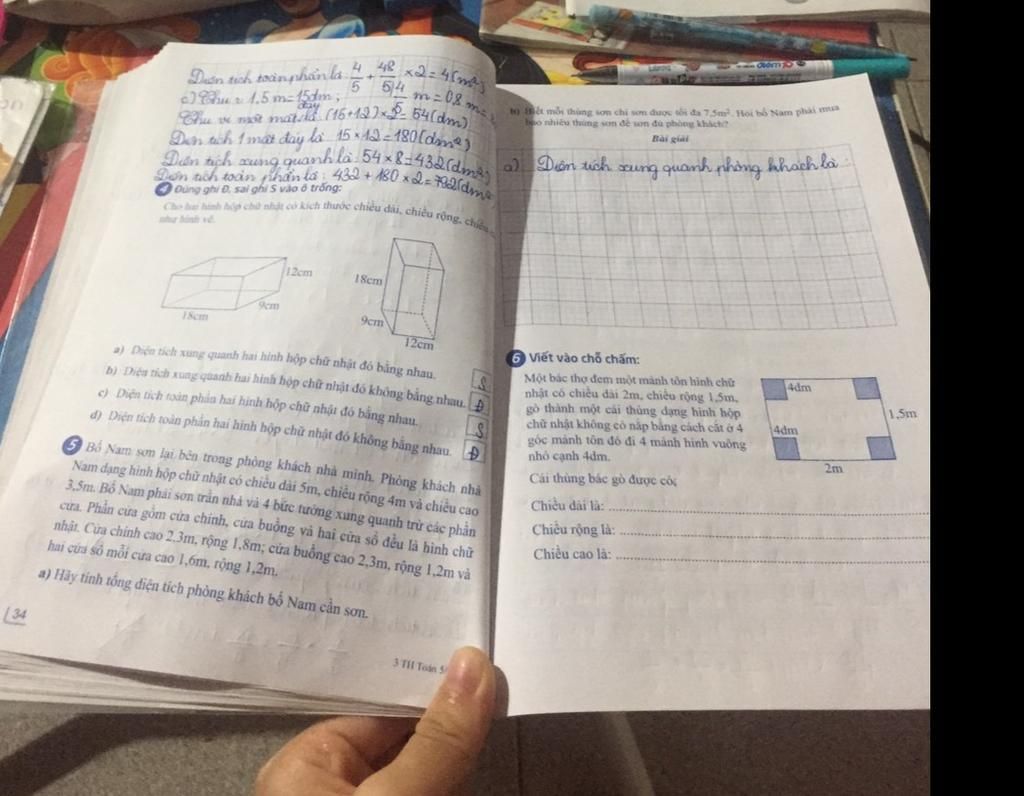 Diện tích toàn phần là: 4/5 + 48/5 × 2 = 4 (m²)
c) Chu 2 1,5 m = 15 dm; 4/5 m = 0,8 m =
Chu vi một mặt đáy là: (15 + 12) × 2 = 54 (dm)
Diện tích 1 mặt đáy là: 15 × 12 = 180 (dm²)
Diện tích xung quanh là: 54 × 8 = 432 (dm²)
Diện tích toàn phần là: 432 + 180 × 2 = 792 (dm²
4 Đúng ghi Đ, sai ghi S vào ô trống:
Cho hai hình hộp chữ nhật có kích thước chiều dài, chiều rộng, chiều
như hình vẽ.
12cm
9cm
18cm
18cm
9cm
12cm
a) Diện tích xung quanh hai hình hộp chữ nhật đó bằng nhau. S
b) Diện tích xung quanh hai hình hộp chữ nhật đó không bằng nhau. Đ
c) Diện tích toàn phần hai hình hộp chữ nhật đó bằng nhau. S
d) Diện tích toàn phần hai hình hộp chữ nhật đó không bằng nhau. Đ
5 Bố Nam sơn lại bên trong phòng khách nhà mình. Phòng khách nhà
Nam dạng hình hộp chữ nhật có chiều dài 5m, chiều rộng 4m và chiều cao
3,5m. Bố Nam phải sơn trần nhà và 4 bức tường xung quanh trừ các phần
cửa. Phần cửa gồm cửa chính, cửa buồng và hai cửa sổ đều là hình chữ
nhật. Cửa chính cao 2,3m, rộng 1,8m; cửa buồng cao 2,3m, rộng 1,2m và
hai cửa sổ mỗi cửa cao 1,6m, rộng 1,2m.
a) Hãy tính tổng diện tích phòng khách bố Nam cần sơn.
34
3 TH Toán 5
b) Biết mỗi thùng sơn chỉ sơn được tối đa 7,5m². Hỏi bố Nam phải mua
bao nhiêu thùng sơn để sơn đủ phòng khách?
Bài giải
a) Diện tích xung quanh phòng khách là:
6 Viết vào chỗ chấm:
Một bác thợ đem một mảnh tôn hình chữ
nhật có chiều dài 2m, chiều rộng 1,5m,
gò thành một cái thùng dạng hình hộp
chữ nhật không có nắp bằng cách cắt ở 4
góc mảnh tôn đó đi 4 mảnh hình vuông
nhỏ cạnh 4dm.
4dm
4dm
1,5m
2m
Cái thùng bác gò được có:
Chiều dài là:
Chiều rộng là:
Chiều cao là: